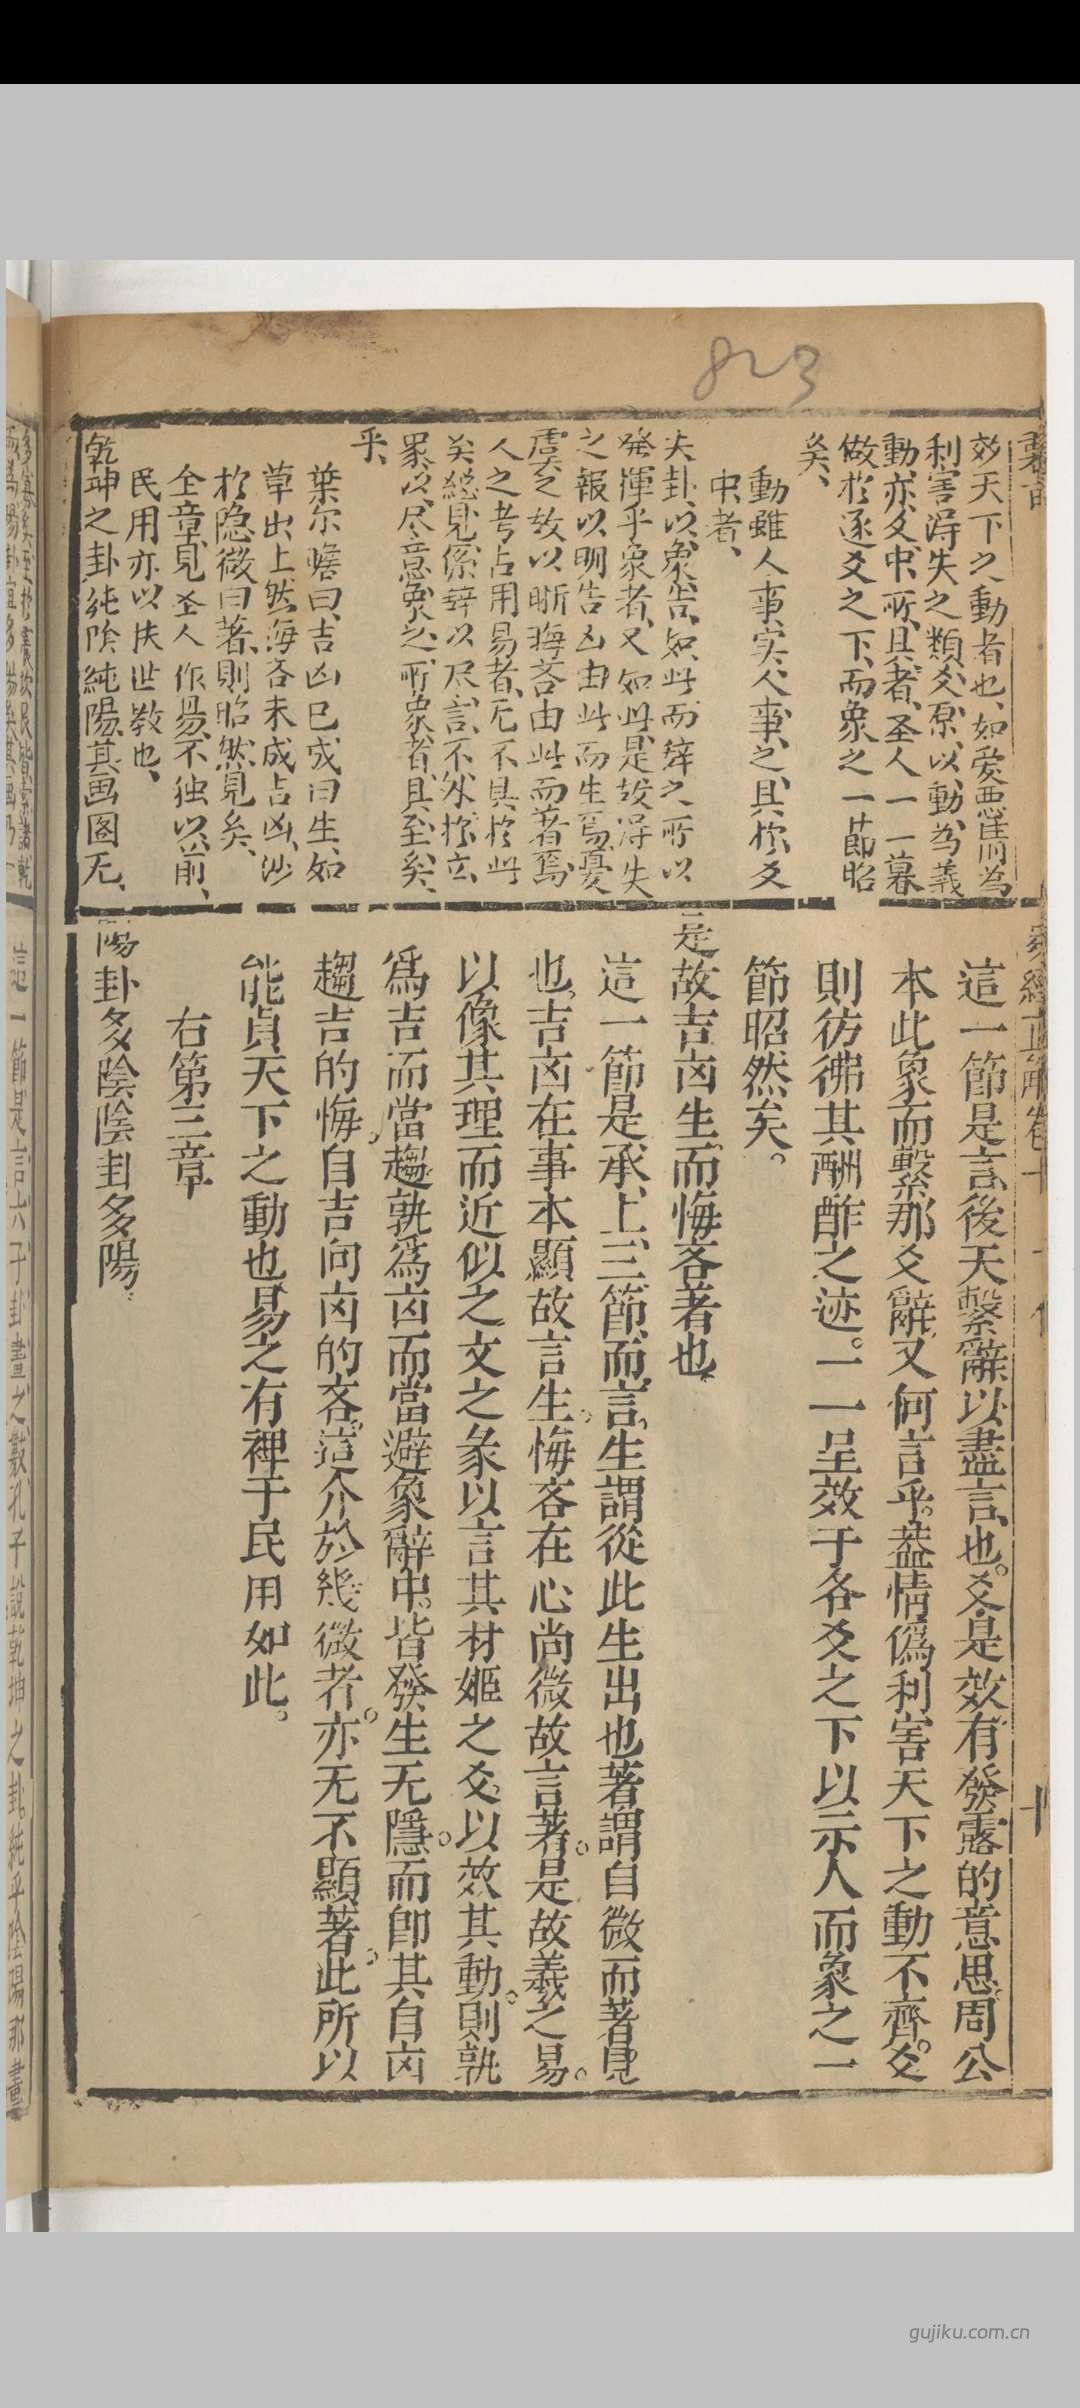 823
效天下之動者也、如爱惡皆為
利害淂失之類、爻原以動為義
動、亦爻中所具者、圣人一一暮
倣扵逐爻之下、而象之一節昭
矣、
動雖人事、实人事之具扵爻
中者、
夫卦以象告、如此而辞之所以
発揮乎象者、又如此、是故淂失
之報以明、吉凶由此而生焉、憂
虞之故以晰、悔吝由此而著焉、
人之考占用易者、无不具扵此
矣、縂見係辞以尽言、不外扵立
象以尽意、象之所象者、具至矣、
乎、
葉尔瞻曰、吉凶已成曰生、如
草出土然、悔吝未成吉凶、涉
扵隐微曰著、則昭然見矣、
全章見圣人作易、不独以前
民用、亦以扶世敎也、
乾坤之卦純陰純陽、其画图无、
這一節是言後天繫辭以盡言也。爻是效有發露的意思。周公
本此象而繫那爻辭、又何言乎。蓋情僞利害天下之動不齊。爻
則彷彿其酬酢之迹。一一呈效于各爻之下以示人而象之一
節昭然矣。
是故吉凶生而悔吝著也
這一節是承上三節而言。生謂從此生出也著謂自微而著見
也。吉凶在事本顯故言生。悔吝在心尚微故言著。是故羲之易。
以像其理而近似之文之彖以言其材姬之爻以效其動。則孰
爲吉而當趨孰爲凶而當避象辭中。皆發生无隱。而卽其自凶
趨吉的悔。自吉向凶的吝。這介於幾微者。亦无不顯著。此所以
能貞天下之動也易之有裨于民用如此。
右第三章
陽卦多陰陰卦多陽
gujiku.com.cn